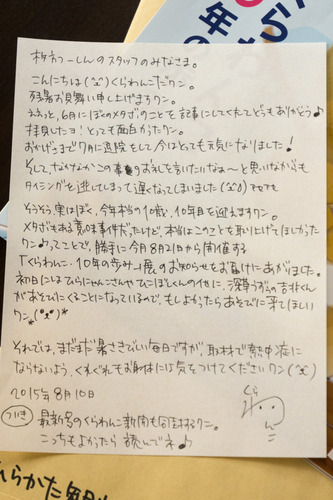 年
こんにちは(^ｪ^)くらわんこだワン。
残暑お見舞い申し上げますワン。
ええっと、6月にぼくのメタボのことを記事にしてくれてどうもありがとう♪
拝見したヨ!とっても面白かったワン。
おかげさまで7月に退院をして今はとっても元気になりました!
そして、なかなかこの事のお礼を言いたいなぁ〜と思いながらも
タイミングを逃してしまって遅くなってしまいました
そうそう、実はぼく、今年本当の10歳、10年目を迎えますワン。
メタボもある意味事件だったけど、本当はこのことを取り上げてほしかった
ワン♪ってことで、勝手に今月8月21日から開催する
「くらわんこ・10年の歩み」展のお知らせをお届けにあがりました。
初日にはひらにゃんこさんやひこぼしくんの他に、深草うずらの吉兆くん
があそびにくることになっているので、もしよかったらあそびに来てほしい
ワン
それでは、まだまだ暑さきびしい毎日ですが、取材で熱中症に
ならないよう、くれぐれもお身体には気をつけてくださいワン
2015年8月10日
くらわんこ
ついき 最新号のくらわんこ新聞も同封するワン。
こっちもよかったら読んでネ♪
ひらかた